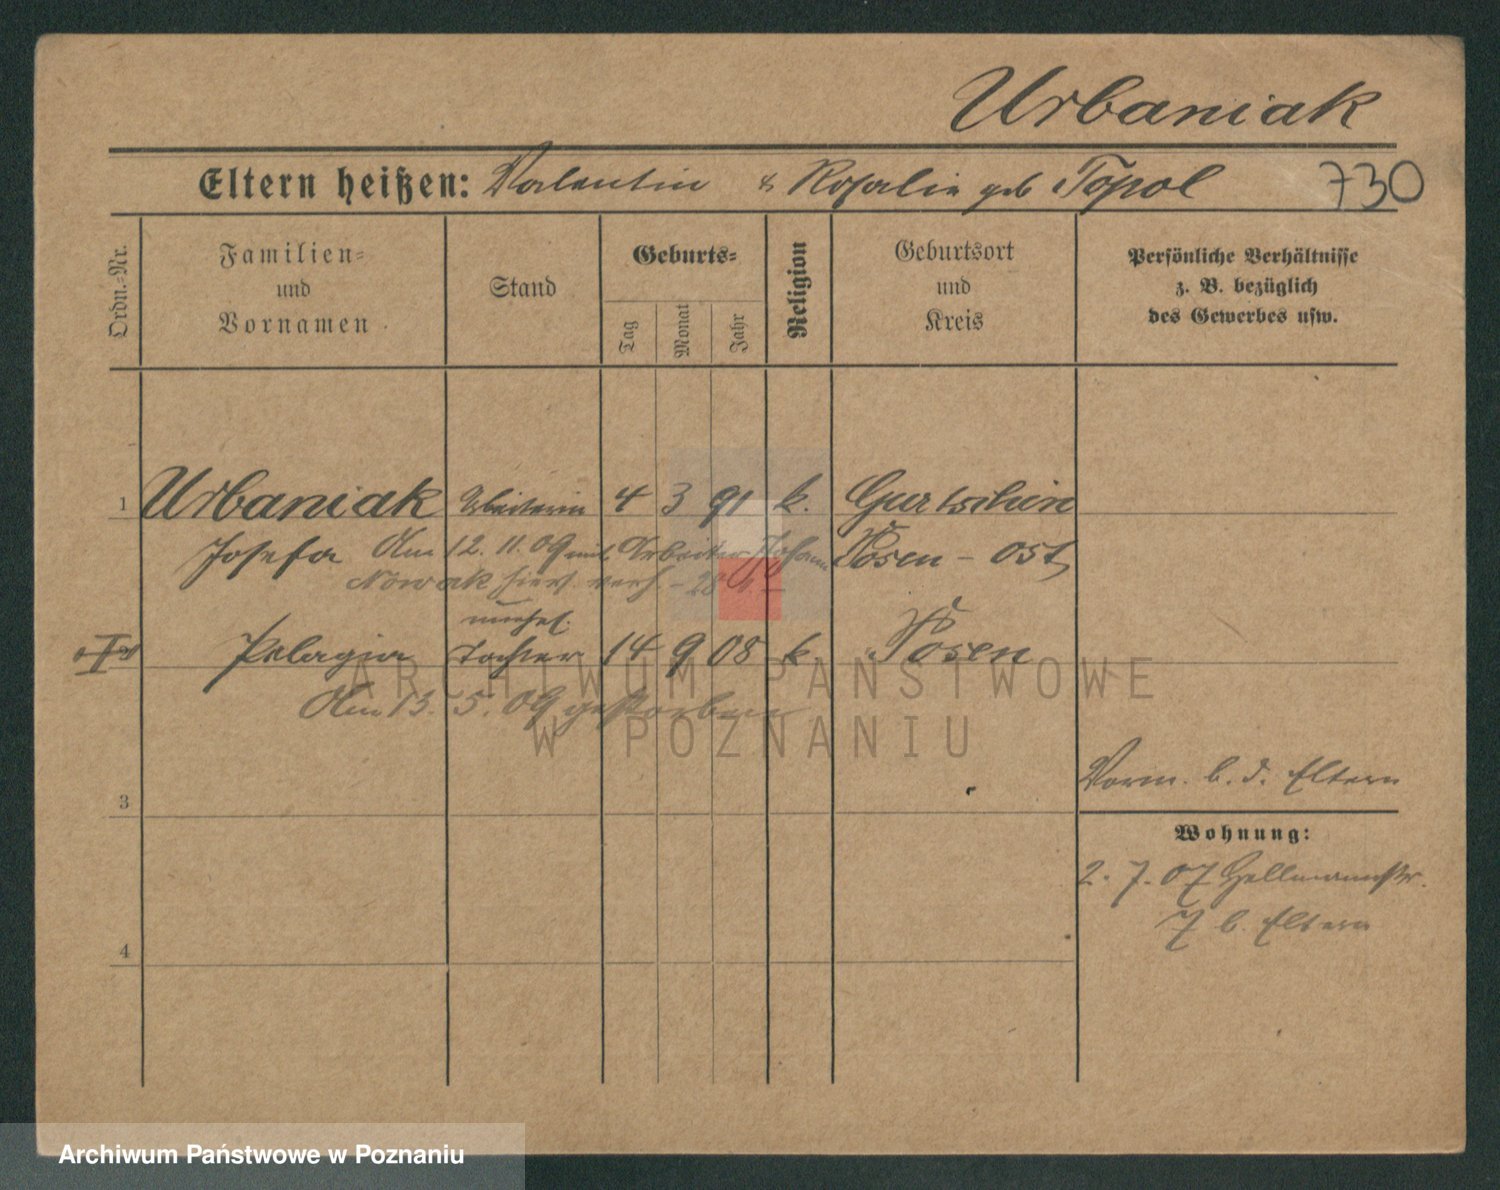 Urbaniak
Eltern heißen: Valentin & Rosalie geb Topol 730
Ordn.=Nr.
Familien=
und
Vornamen
Stand
Geburts=
Tag
Monat
Jahr
Religion
Geburtsort
und
Kreis
Persönliche Verhältnisse
z. B. bezüglich
des Gewerbes usw.
1 Urbaniak Arbeiterin 4 3 91 k. Gurtschin
Josefa Posen - Ost
Am 12. 11. 09 mit Arbeiter Johann
Nowak hier verh
unehel.
Pelagia Tochter 14 9 08 k. Posen
Am 13. 5. 09 gestorben
ARCHIWUM PAŃSTWOWE
W POZNANIU
Vorm. b. d. Eltern
3
Wohnung:
2. 7. 07 Hellmannstr.
7 b. Eltern
4
Archiwum Państwowe w Poznaniu